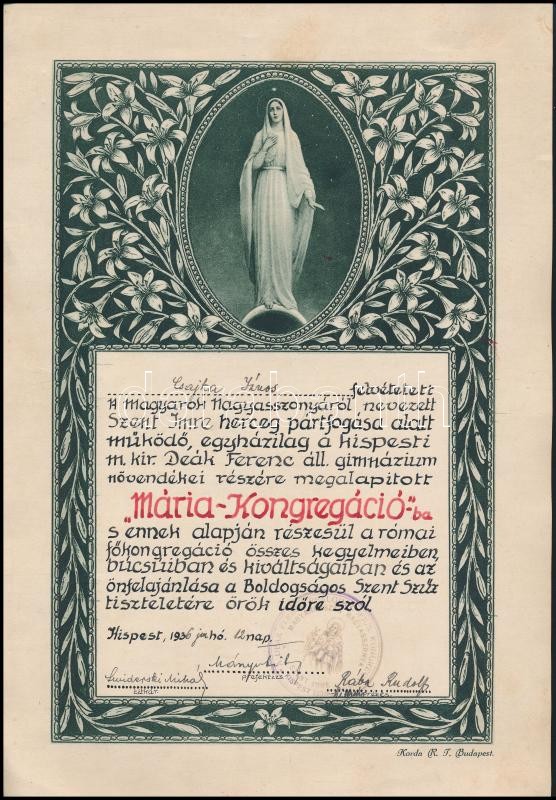 Csajka János felvétetett
A Magyarok Nagyasszonyáról nevezett
Szent Imre herceg pártfogása alatt
működő, egyházilag a kispesti
m. kir. Deák Ferenc áll. gimnázium
növendékei részére megalapított
„Mária-Kongregáció"-ba
s ennek alapján részesül a római
főkongregáció összes kegyelmeiben,
búcsúiban és kiváltságaiban és az
önfelajánlása a Boldogságos Szent Szűz
tiszteletére örök időre szól.
Kispest, 1936 jun hó. 12 nap.
Swiderski Mihály
titkár.
prefektus
Rába Rudolf
Korda R. T. Budapest.